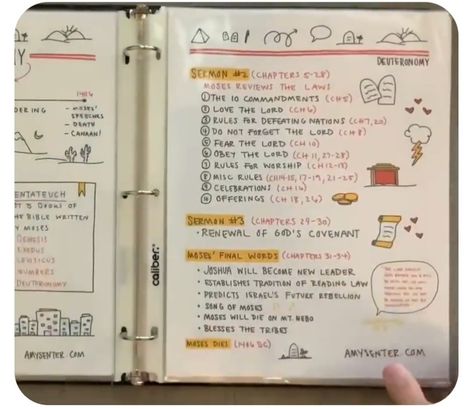 1416
DERING
- MOSES'
SPEECHES
- DEATH
- CANAAN!
ENTATEUCH
BOOKS OF
THE BIBLE WRITTEN
BY MOSES
GENESIS
EXODUS
LEVITICUS
NUMBERS
DEUTERONOMY
AMYSENTER.COM
caliber.
DEUTERONOMY
SERMON #2 (CHAPTERS 5-28)
MOSES REVIEWS THE LAWS
① THE 10 COMMANDMENTS (CH 5)
② LOVE THE LORD (CH 6)
③ RULES FOR DEFEATING NATIONS (CH 7, 20)
④ DO NOT FORGET THE LORD (CH 8)
⑤ FEAR THE LORD (CH 10)
⑥ OBEY THE LORD (CH 11, 27-28)
⑦ RULES FOR WORSHIP (CH 12-13)
⑧ MISC RULES (CH 14-15, 17-19, 21-25)
⑨ CELEBRATIONS (CH 16)
⑩ OFFERINGS (CH 18, 26)
SERMON #3 (CHAPTERS 29-30)
• RENEWAL OF GOD'S COVENANT
MOSES' FINAL WORDS (CHAPTERS 31-34)
• JOSHUA WILL BECOME NEW LEADER
• ESTABLISHES TRADITION OF READING LAW
• PREDICTS ISRAEL'S FUTURE REBELLION
• SONG OF MOSES
• MOSES WILL DIE ON MT. NEBO
• BLESSES THE TRIBES
MOSES DIES (1406 BC)
AMYSENTER.COM